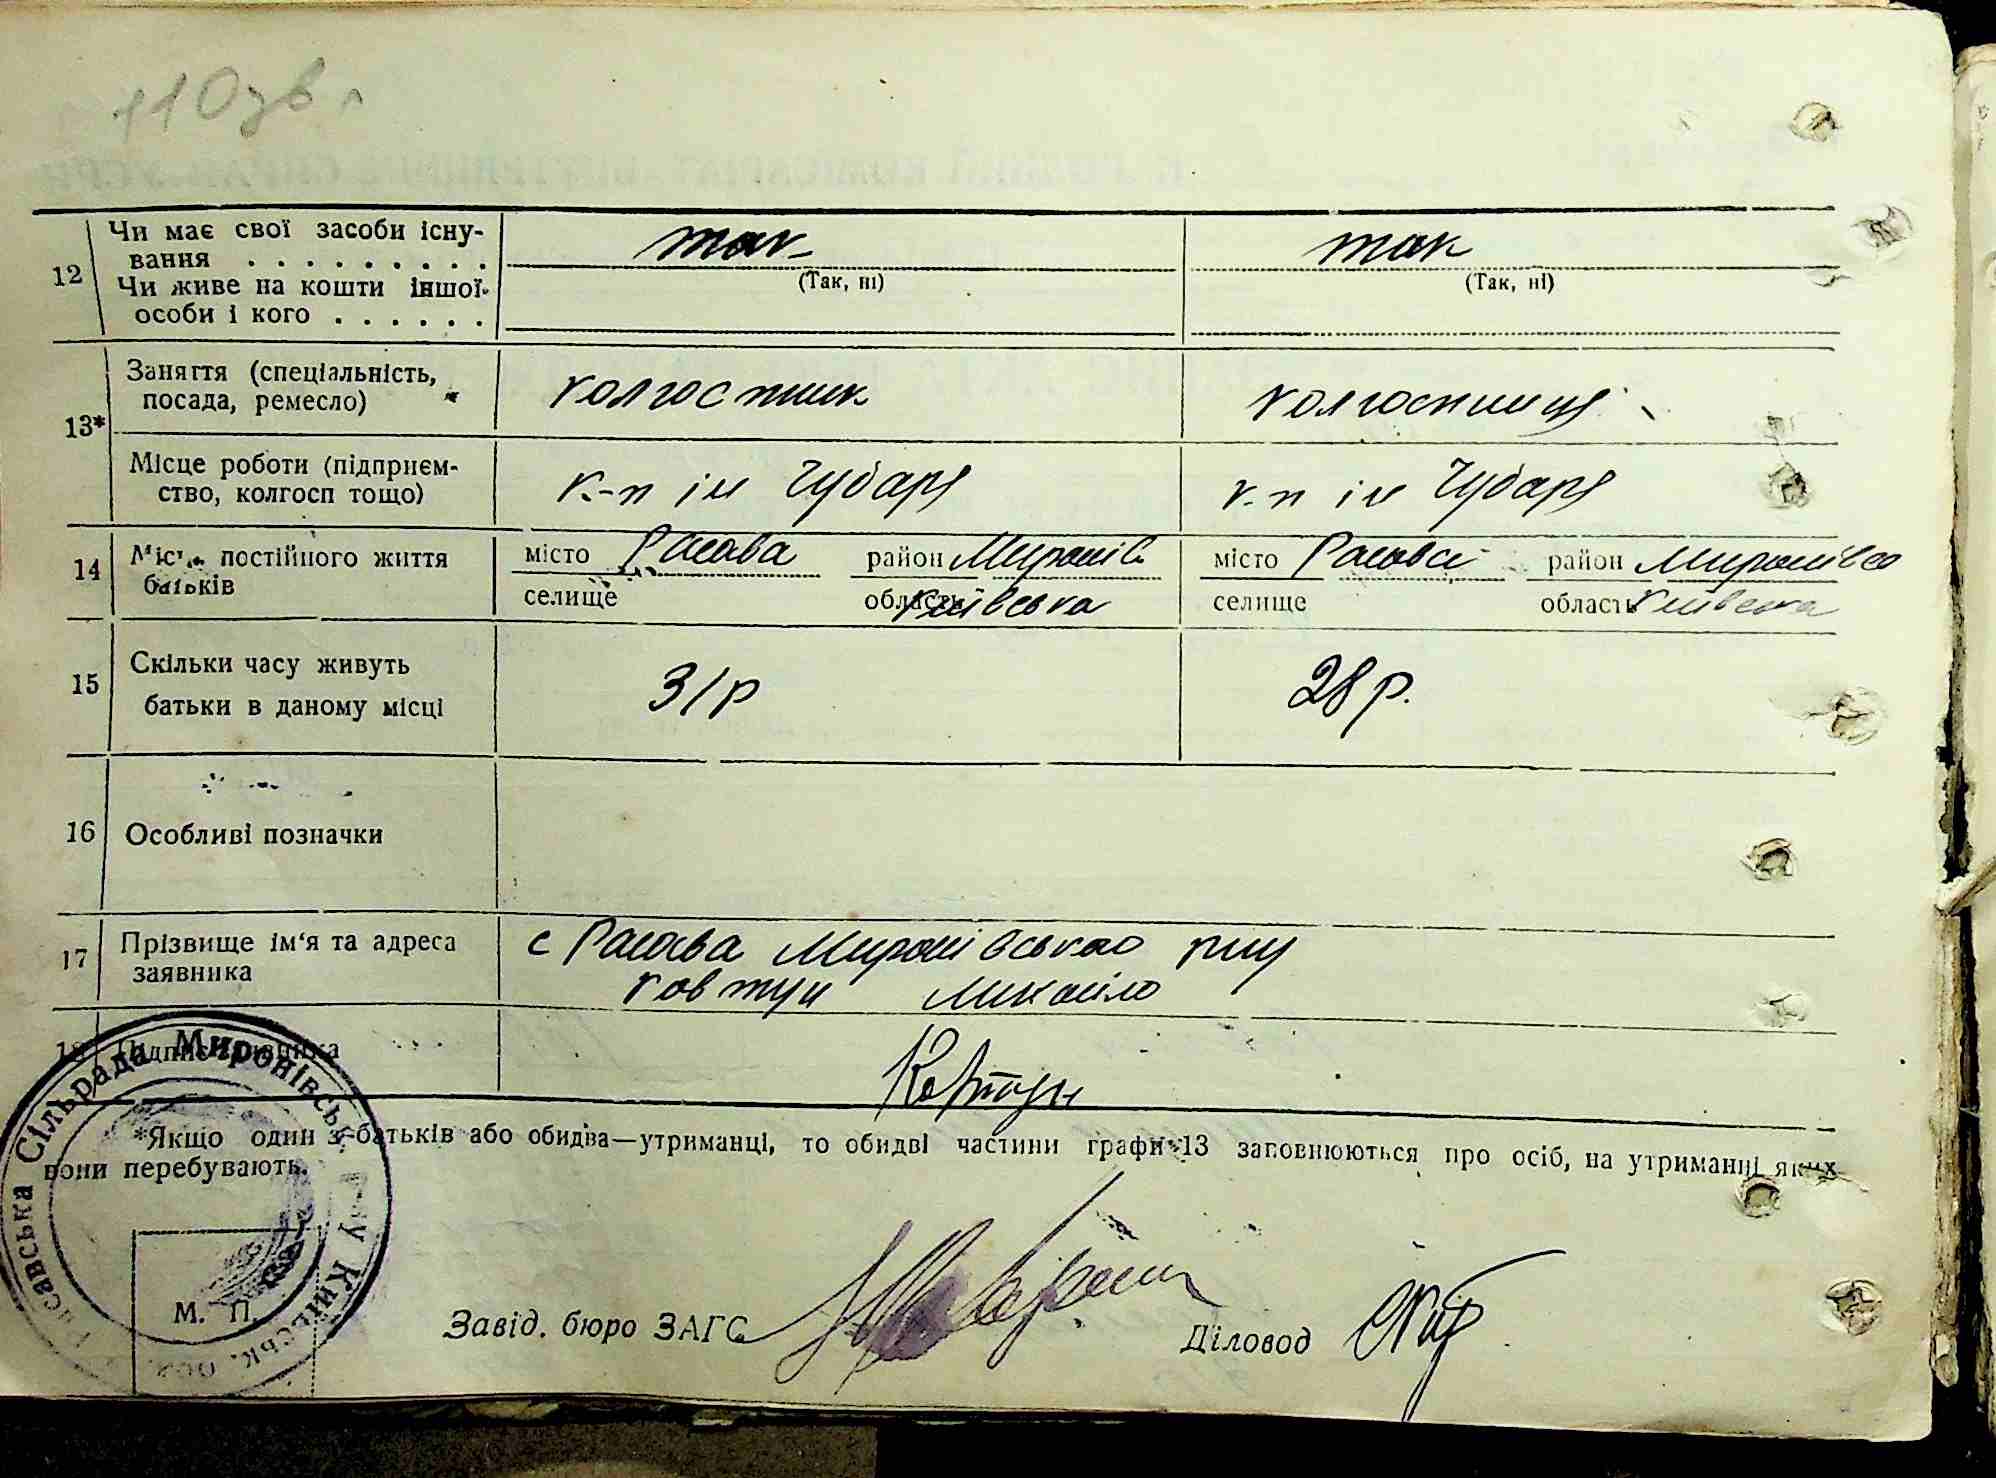 110 зв
12 Чи має свої засоби існу- так так
вання . . . . . . . . . (Так, ні) (Так, ні)
Чи живе на кошти іншої
особи і кого . . . . . .
13* Заняття (спеціальність, колгоспник колгоспниця
посада, ремесло)
Місце роботи (підприєм- к-п ім Чубаря к-п ім Чубаря
ство, колгосп тощо)
14 Місце постійного життя місто Расава район Миронівс місто Расава район Миронівсо
батьків селище область Київська селище область Київська
15 Скільки часу живуть 31р 28р.
батьки в даному місці
16 Особливі позначки
17 Прізвище ім'я та адреса с Расава Миронівського р-ну
заявника Ковтун Михайло
18 Підпис заявника Ковтун
*Якщо один з батьків або обидва—утриманці, то обидві частини графи 13 заповнюються про осіб, на утриманні яких
вони перебувають.
Сільрада Миронівськ. р-ну Київськ. обл.
М. П.
Завід. бюро ЗАГС Діловод